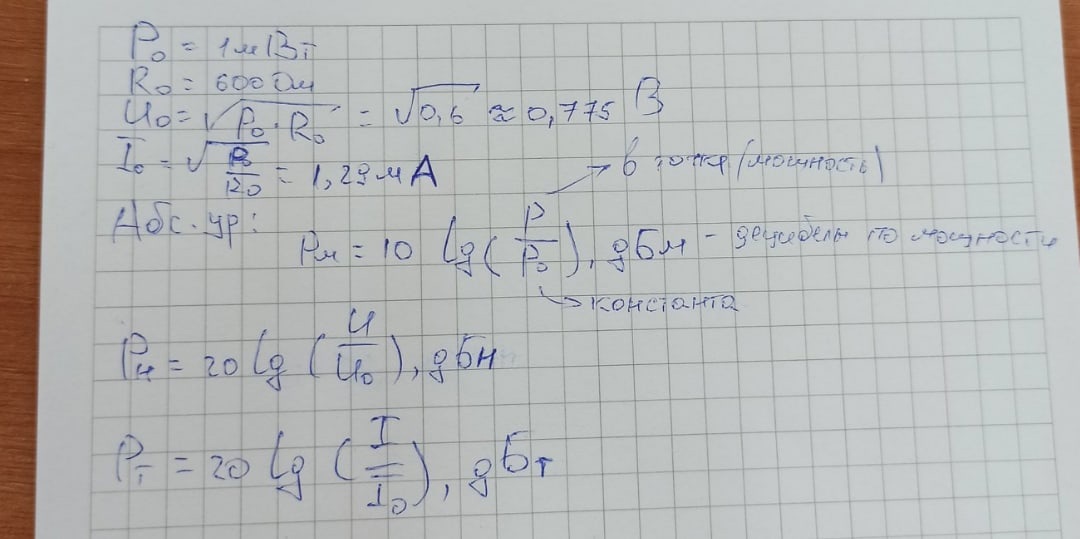 P₀ = 1мВт
R₀ = 600 Ом
U₀ = √(P₀ · R₀) = √0,6 ≈ 0,775 В
I₀ = √(P₀/R₀) = 1,29 мА
→ в точке (мощность)
Абс. ур:
Pм = 10 lg (P/P₀), дБм - децибелы по мощности
→ константа
Pн = 20 lg (U/U₀), дБн
Pт = 20 lg (I/I₀), дБт